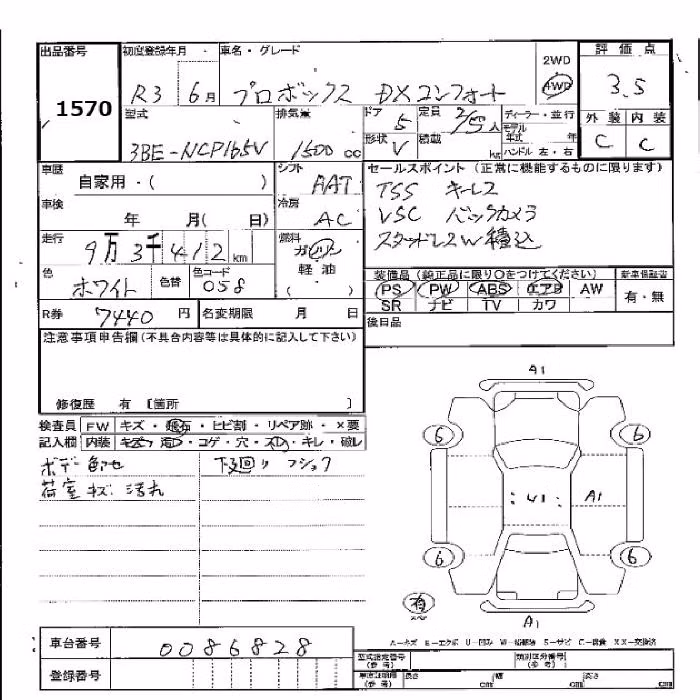 出品番号 初度登録年月 車名・グレード 2WD 評価点
1570 R3 6月 プロボックス DXコンフォート 4WD 3.5
型式 排気量 ドア 5 定員 2/5人 ディーラー・並行 外装 内装
3BE-NCP165V 1500cc 形状 V 積載 kg モデル年式 年 C C
ハンドル 左・右
車歴 自家用・( ) シフト AAT セールスポイント(正常に機能するものに限ります)
車検 年 月( 日) 冷房 AC TSS キーレス
VSC バックカメラ
走行 9万3千412km 燃料 ガソリン スタッドレスW積込
色 ホワイト 色替 色コード 058 軽油 ( ) 装備品(純正品に限り○をつけてください) 新車保証書
PS PW ABS エアB AW 有・無
SR ナビ TV カワ
R券 7440円 名変期限 月 日 後日品
注意事項申告欄(不具合内容等は具体的に記入して下さい)
修復歴 有 〔箇所 〕
検査員 FW キズ・飛石・ヒビ割・リペア跡・×要
記入欄 内装 キズ・汚レ・コゲ・穴・スレ・キレ・破レ
荷室キズ 汚れ 下廻り
A1
6 6
A1
6 6
有
A1
A-キズ E-エクボ U-凹み W-補修跡 S-サビ C-腐食 XX-交換済
車台番号 0086828 型式指定番号(参考) 類別区分番号(参考)
登録番号 長さ cm 幅 cm 高さ cm